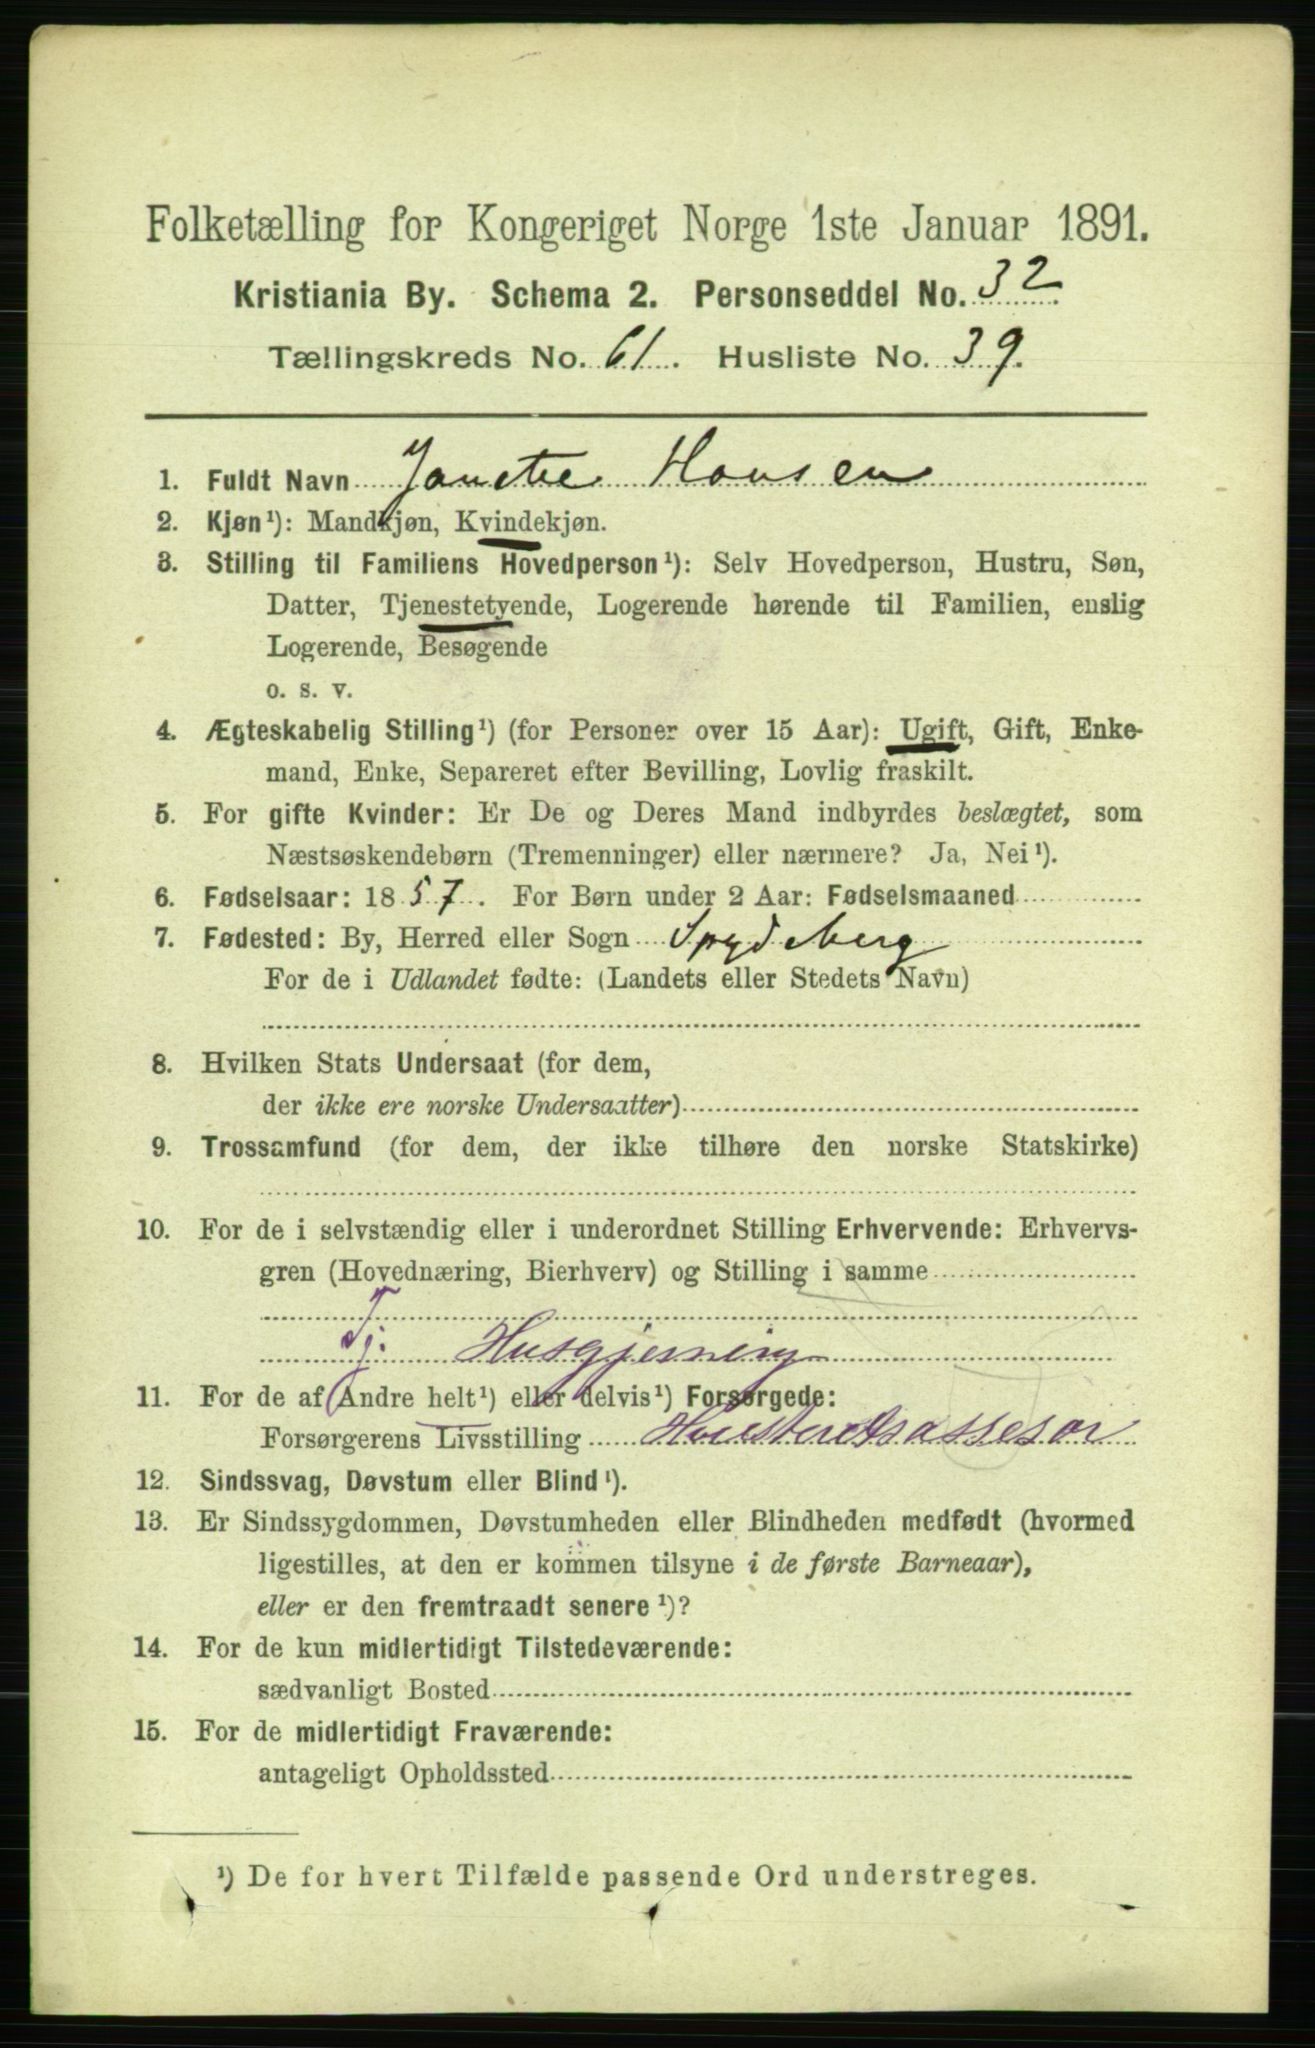 Folketælling for Kongeriget Norge 1ste Januar 1891.
Kristiania By. Schema 2. Personseddel No. 32
Tællingskreds No. 61. Husliste No. 39.
1. Fuldt Navn Janette Hansen
2. Kjøn¹): Mandkjøn, Kvindekjøn.
3. Stilling til Familiens Hovedperson¹): Selv Hovedperson, Hustru, Søn,
Datter, Tjenestetyende, Logerende hørende til Familien, enslig
Logerende, Besøgende
o. s. v.
4. Ægteskabelig Stilling¹) (for Personer over 15 Aar): Ugift, Gift, Enke-
mand, Enke, Separeret efter Bevilling, Lovlig fraskilt.
5. For gifte Kvinder: Er De og Deres Mand indbyrdes beslægtet, som
Næstsøskendebørn (Tremenninger) eller nærmere? Ja, Nei¹).
6. Fødselsaar: 1857. For Børn under 2 Aar: Fødselsmaaned
7. Fødested: By, Herred eller Sogn Spydeberg
For de i Udlandet fødte: (Landets eller Stedets Navn)
8. Hvilken Stats Undersaat (for dem,
der ikke ere norske Undersaatter)
9. Trossamfund (for dem, der ikke tilhøre den norske Statskirke)
10. For de i selvstændig eller i underordnet Stilling Erhvervende: Erhvervs-
gren (Hovednæring, Bierhverv) og Stilling i samme
Tj. Husgjerning
11. For de af Andre helt¹) eller delvis¹) Forsørgede:
Forsørgerens Livsstilling Høiesteretsassessor
12. Sindssvag, Døvstum eller Blind¹).
13. Er Sindssygdommen, Døvstumheden eller Blindheden medfødt (hvormed
ligestilles, at den er kommen tilsyne i de første Barneaar),
eller er den fremtraadt senere¹)?
14. For de kun midlertidigt Tilstedeværende:
sædvanligt Bosted
15. For de midlertidigt Fraværende:
antageligt Opholdssted
¹) De for hvert Tilfælde passende Ord understreges.